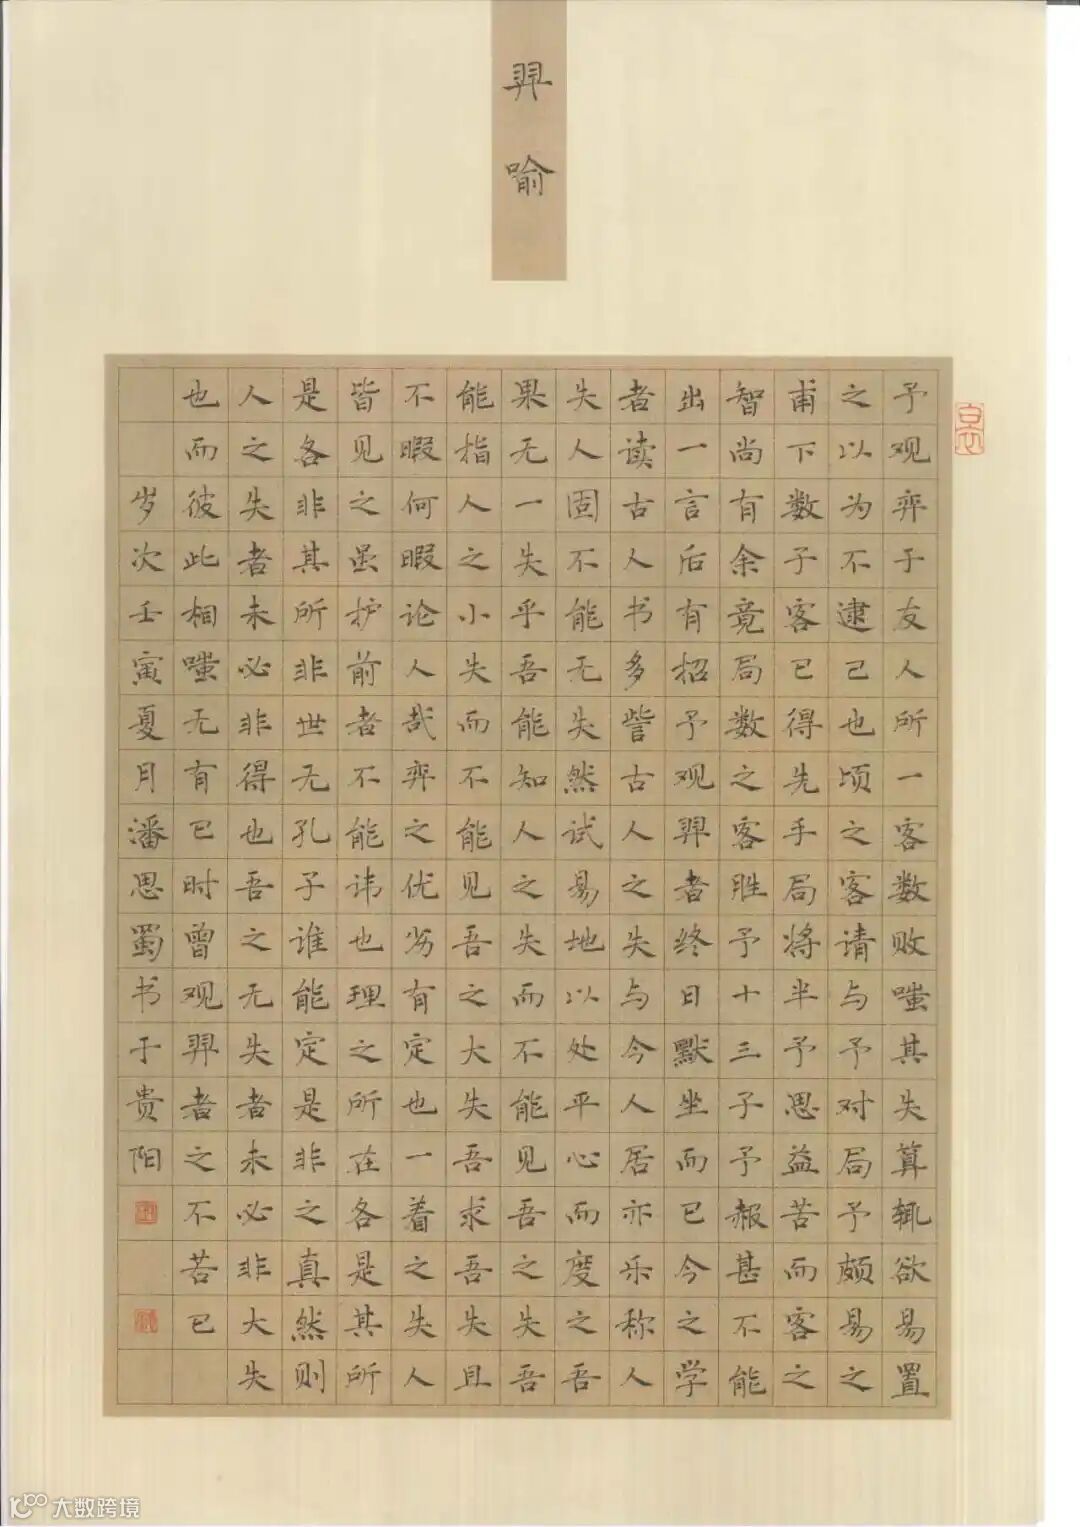 羿喻
予观弈于友人所一客数败嗤其失算辄欲易置
之以为不逮己也顷之客请与予对局予颇易之
甫下数子客已得先手局将半予思益苦而客之
智尚有余竟局数之客胜予十三子予赧甚不能
出一言后有招予观羿者终日默坐而已今之学
者读古人书多訾古人之失与今人居亦乐称人
失人固不能无失然试易地以处平心而度之吾
果无一失乎吾能知人之失而不能见吾之失吾
能指人之小失而不能见吾之大失吾求吾失且
不暇何暇论人哉弈之优劣有定也一着之失人
皆见之虽护前者不能讳也理之所在各是其所
是各非其所非世无孔子谁能定是非之真然则
人之失者未必非得也吾之无失者未必非大失
也而彼此相嗤无有已时曾观羿者之不若已
岁次壬寅夏月潘思蜀书于贵阳
大数跨境